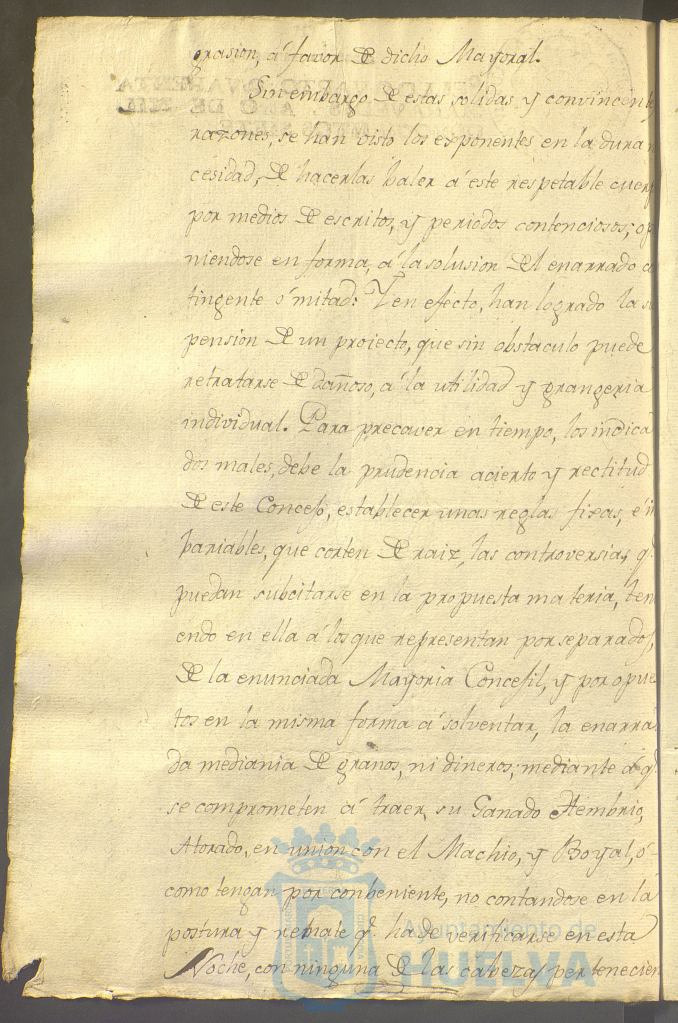 grasion, á favor de dicho Mayoral.
Sin embargo de estas solidas y convincente
razones, se han visto los exponentes en la duran
cesidad, de hacerlas baler á este respetable cuerp
por medios de escritos, y periodos contenciosos; op
niendose en forma, á la solusion del enarrado co
tingente ó mitad: Y en efecto, han logrado la su
pension de un proiecto, que sin obstaculo puede
retratarse de dañoso, á la utilidad y grangeria
individual. Para precaver en tiempo, los indica
dos males, debe la prudencia acierto y rectitud
de este Concejo, establecer unas reglas fixas, e in
bariables, que corten de raiz, las controversias q.
puedan subcitarse en la propuesta materia, ten
endo en ella á los que representan por separados,
de la enunciada Mayoria Concejil, y por opue
tos en la misma forma á solventar, la enarra
da mediania de granos, ni dineros; mediante á q.
se comprometen á traer, su Ganado Hembrio,
Atorado, en union con el Machio, y Boyal, ó
como tengan por conbeniente, no contandose en la
postura y remate q. ha de verificarse en esta
Noche, con ninguna de las cabezas pertenecien
Ayuntamiento de
HUELVA